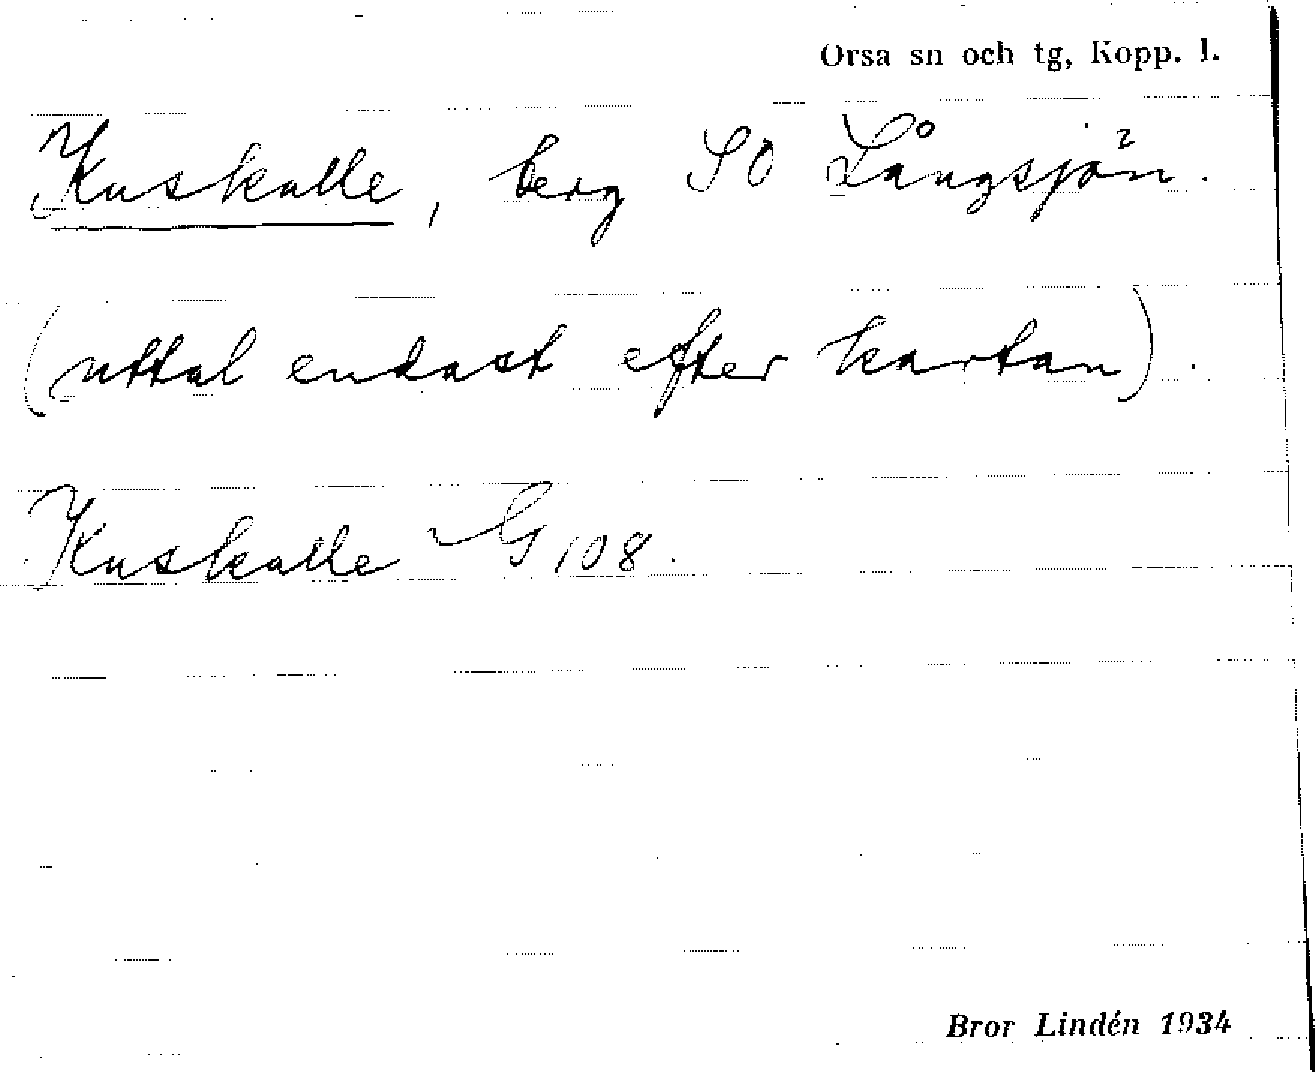 Orsa sn och tg, Kopp. l.
Kuskalle, berg SO Långsjön.
(uttal endast efter kartan).
Kuskalle G 108.
Bror Lindén 1934